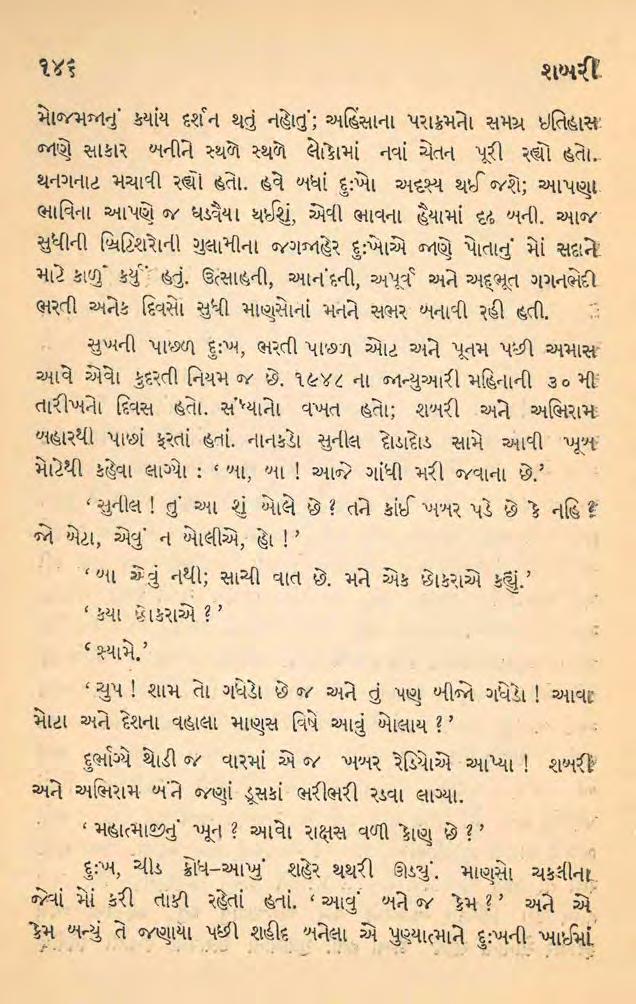 ૧૪૬ શબરી
મોજમજાનું ક્યાંય દર્શન થતું નહોતું; અહિંસાના પરાક્રમનો સમગ્ર ઇતિહાસ
જાણે સાકાર બનીને સ્થળે સ્થળે લોકોમાં નવાં ચેતન પૂરી રહ્યો હતો.
થનગનાટ મચાવી રહ્યો હતો. હવે બધાં દુઃખો અદૃશ્ય થઈ જશે; આપણા
ભાવિના આપણે જ ઘડવૈયા થઈશું, એવી ભાવના હૈયામાં દૃઢ બની. આજ
સુધીની બ્રિટિશરોની ગુલામીના જગજાહેર દુઃખોએ જાણે પોતાનું મોં સદાને
માટે કાળું કર્યું હતું. ઉત્સાહની, આનંદની, અપૂર્વ અને અદ્ભૂત ગગનભેદી
ભરતી અનેક દિવસો સુધી માણસોનાં મનને સભર બનાવી રહી હતી.
સુખની પાછળ દુઃખ, ભરતી પાછળ ઓટ અને પૂનમ પછી અમાસ
આવે એવો કુદરતી નિયમ જ છે. ૧૯૪૮ ના જાન્યુઆરી મહિનાની ૩૦ મી
તારીખનો દિવસ હતો. સંધ્યાનો વખત હતો; શબરી અને અભિરામ
બહારથી પાછાં ફરતાં હતાં. નાનકડો સુનીલ દોડાદોડ સામે આવી ખૂબ
મોટેથી કહેવા લાગ્યો : ‘ બા, બા ! આજે ગાંધી મરી જવાના છે.’
‘ સુનીલ ! તું આ શું બોલે છે ? તને કાંઈ ખબર પડે છે કે નહિ ?
જો બેટા, એવું ન બોલીએ, હો ! ’
‘ બા એવું નથી; સાચી વાત છે. મને એક છોકરાએ કહ્યું.’
‘ કયા છોકરાએ ? ’
‘ શ્યામે.’
‘ ચુપ ! શામ તો ગધેડો છે જ અને તું પણ બીજો ગધેડો ! આવા
મોટા અને દેશના વહાલા માણસ વિષે આવું બોલાય ? ’
દુર્ભાગ્યે થોડી જ વારમાં એ જ ખબર રેડિયોએ આપ્યા ! શબરી
અને અભિરામ બંને જણાં ડૂસકાં ભરીભરી રડવા લાગ્યા.
‘ મહાત્માજીનું ખૂન ? આવો રાક્ષસ વળી કોણ છે ? ’
દુઃખ, ચીડ ક્રોધ–આખું શહેર થથરી ઊઠ્યું. માણસો ચકલીના
જેવાં મોં કરી તાકી રહેતાં હતાં. ‘ આવું બને જ કેમ ? ’ અને એ
કેમ બન્યું તે જણાયા પછી શહીદ બનેલા એ પુણ્યાત્માને દુઃખની ખાઈમાં